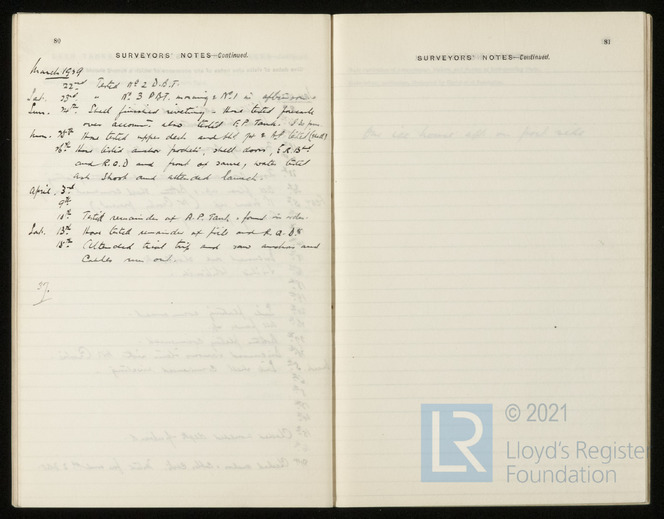 80
SURVEYORS' NOTES—Continued.
March 1929
22nd Tested No 2 D.B.T.
Sat. 23rd " No 3 DBT. morning & No 1 in afternoon
Sun. 24th Shell finished riveting - Hose tested
over account. also tested F.P. Tank.
Mon. 25th Hose tested upper deck and
26th Hose tested anchor pockets, shell doors,
and R.O.D and front of same, water tested
ash shoot and attended launch.
April. 3rd
9th
10th Tested remainder of A.P. Tank - found in order.
Sat. 13th Hose tested remainder of and R.Q.D.
18th Attended trial trip and saw anchors and
Cables run out.
37.
81
SURVEYORS' NOTES—Continued.
LR
© 2021
Lloyd's Register
Foundation